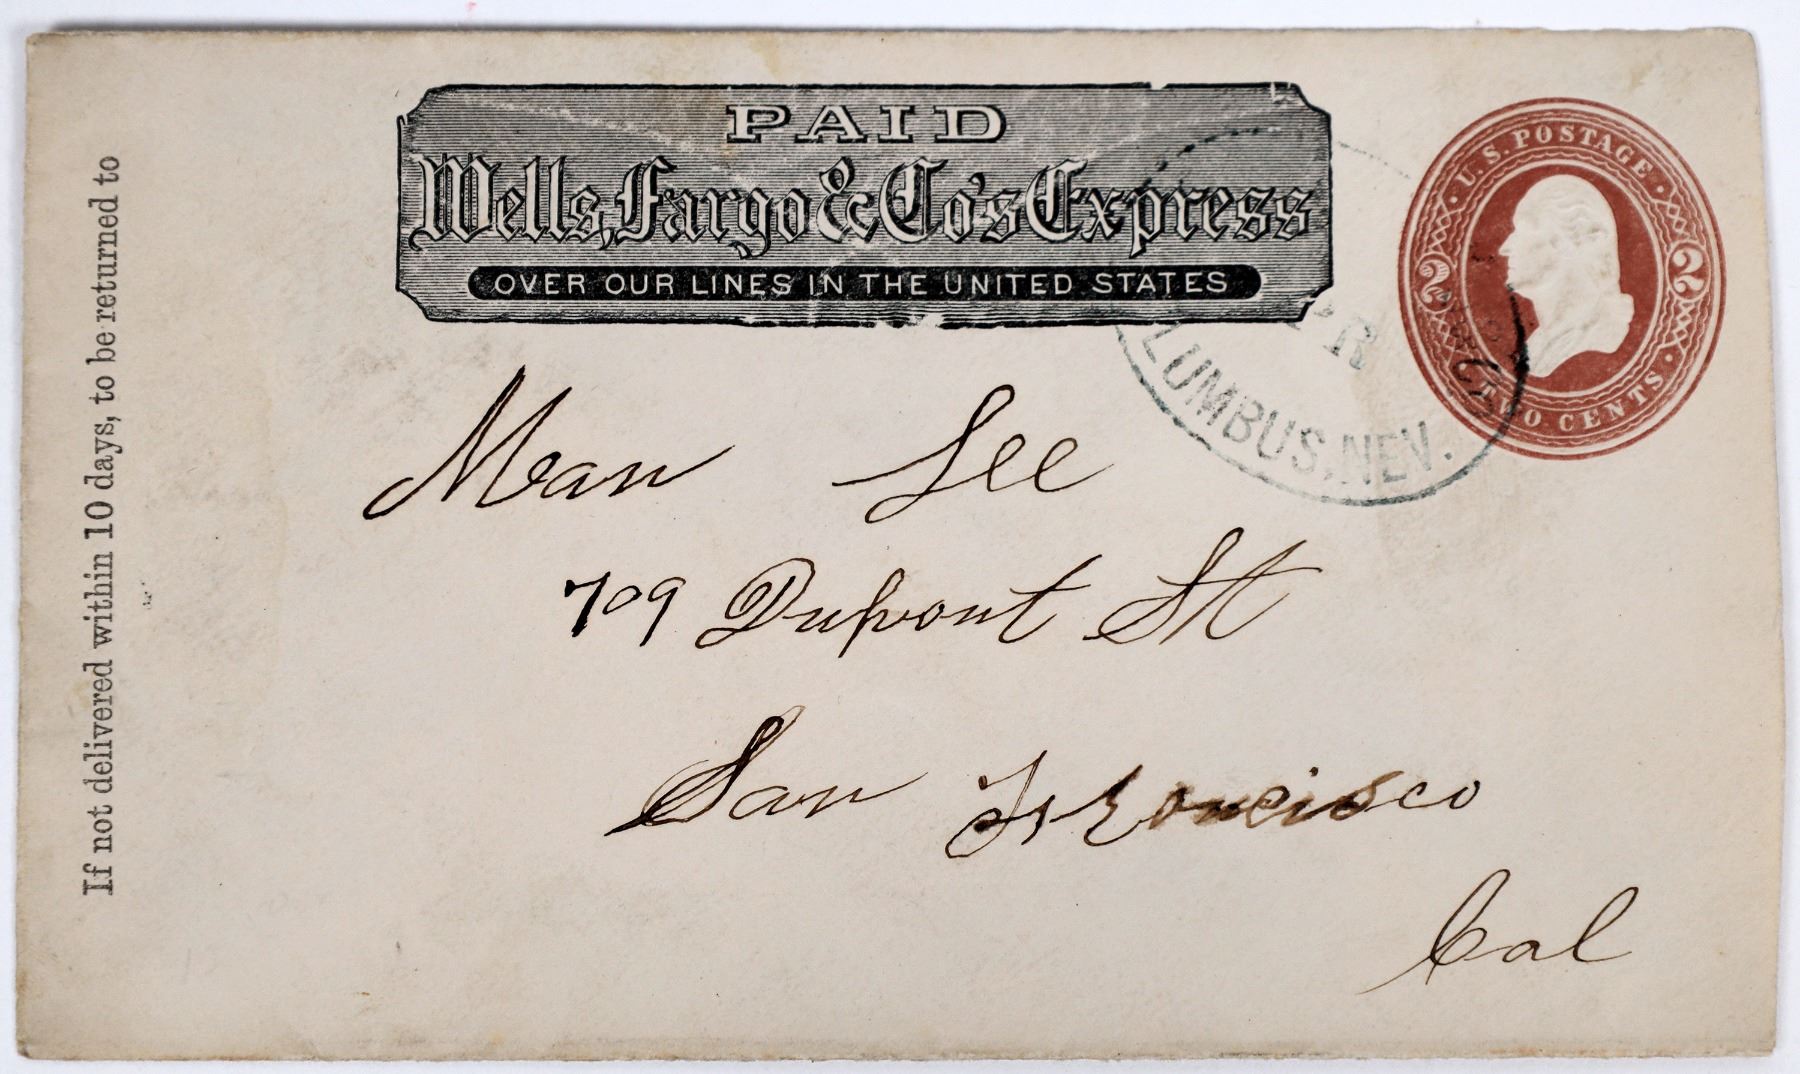 If not delivered within 10 days, to be returned to
PAID
Wells, Fargo & Co's Express
OVER OUR LINES IN THE UNITED STATES
U.S. POSTAGE
2 2
TWO CENTS
LUMBUS, NEV.
Mean Lee
709 Dupont St
San Francisco
Cal